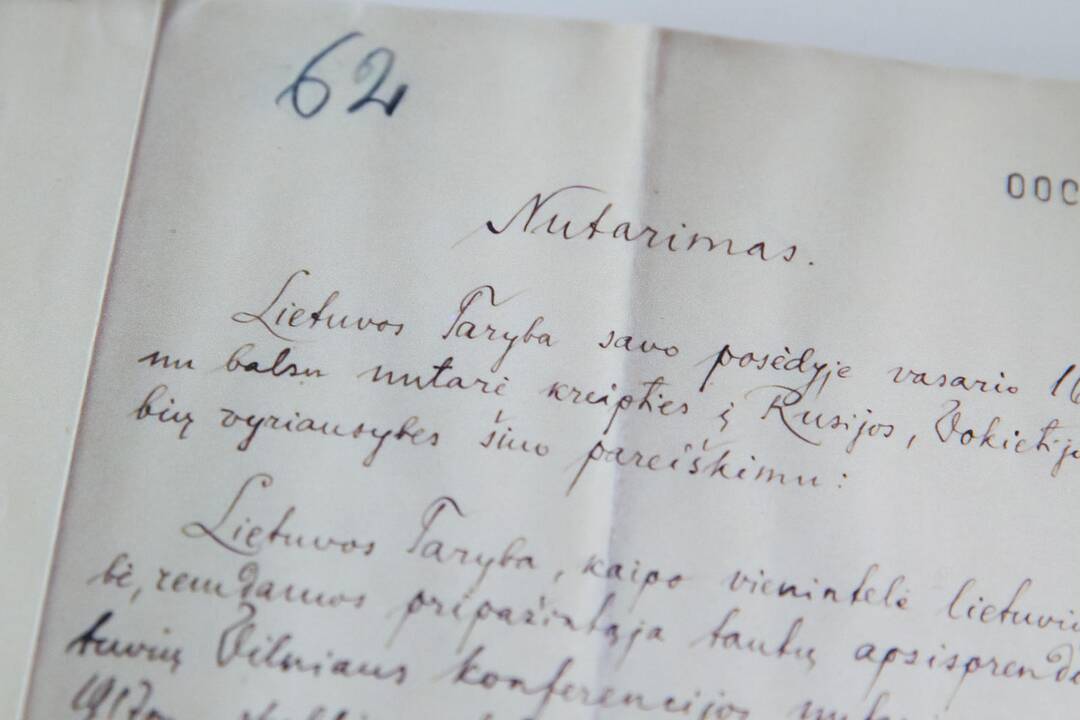 62
000
Nutarimas.
Lietuvos Taryba savo posėdyje vasario 16
nu balsu nutarė kreipties į Rusijos, Vokietij
bių vyriausybes šiuo pareiškimu:
Lietuvos Taryba, kaipo vienintelė lietuvių
bė, remdamos pripažintąja tautų apsisprend
tuvių Vilniaus konferencijos